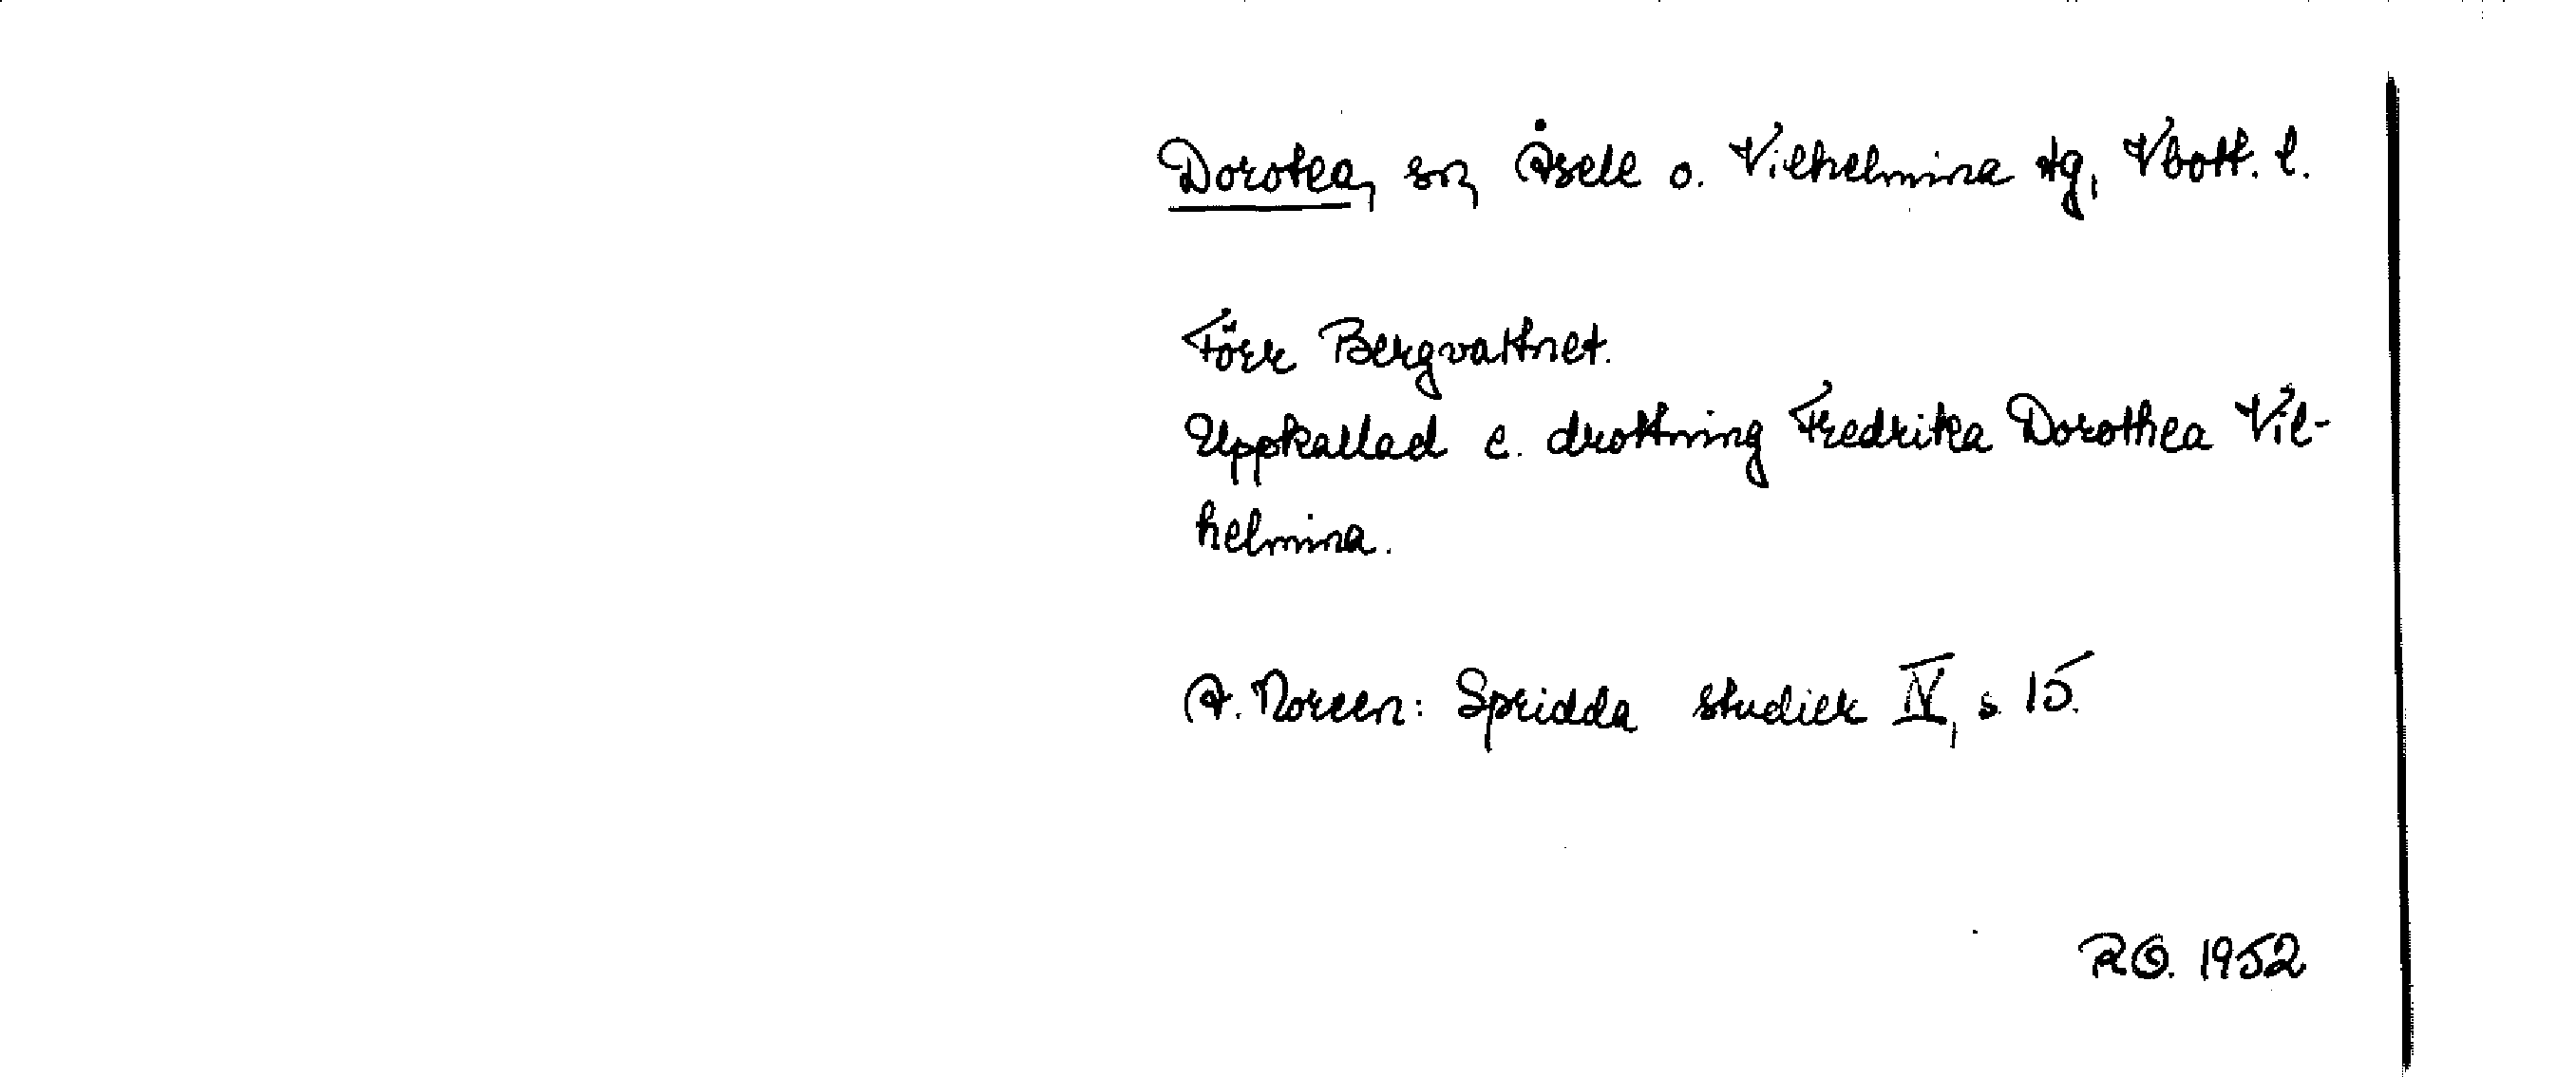 Dorotea, sn, Åsele o. Vilhelmina tg, Vbott. l.
Förr Bergvattnet.
Uppkallad e. drottning Fredrika Dorothea Vil-
helmina.
A. Noreen: Spridda studier IV, s. 15.
RO. 1952